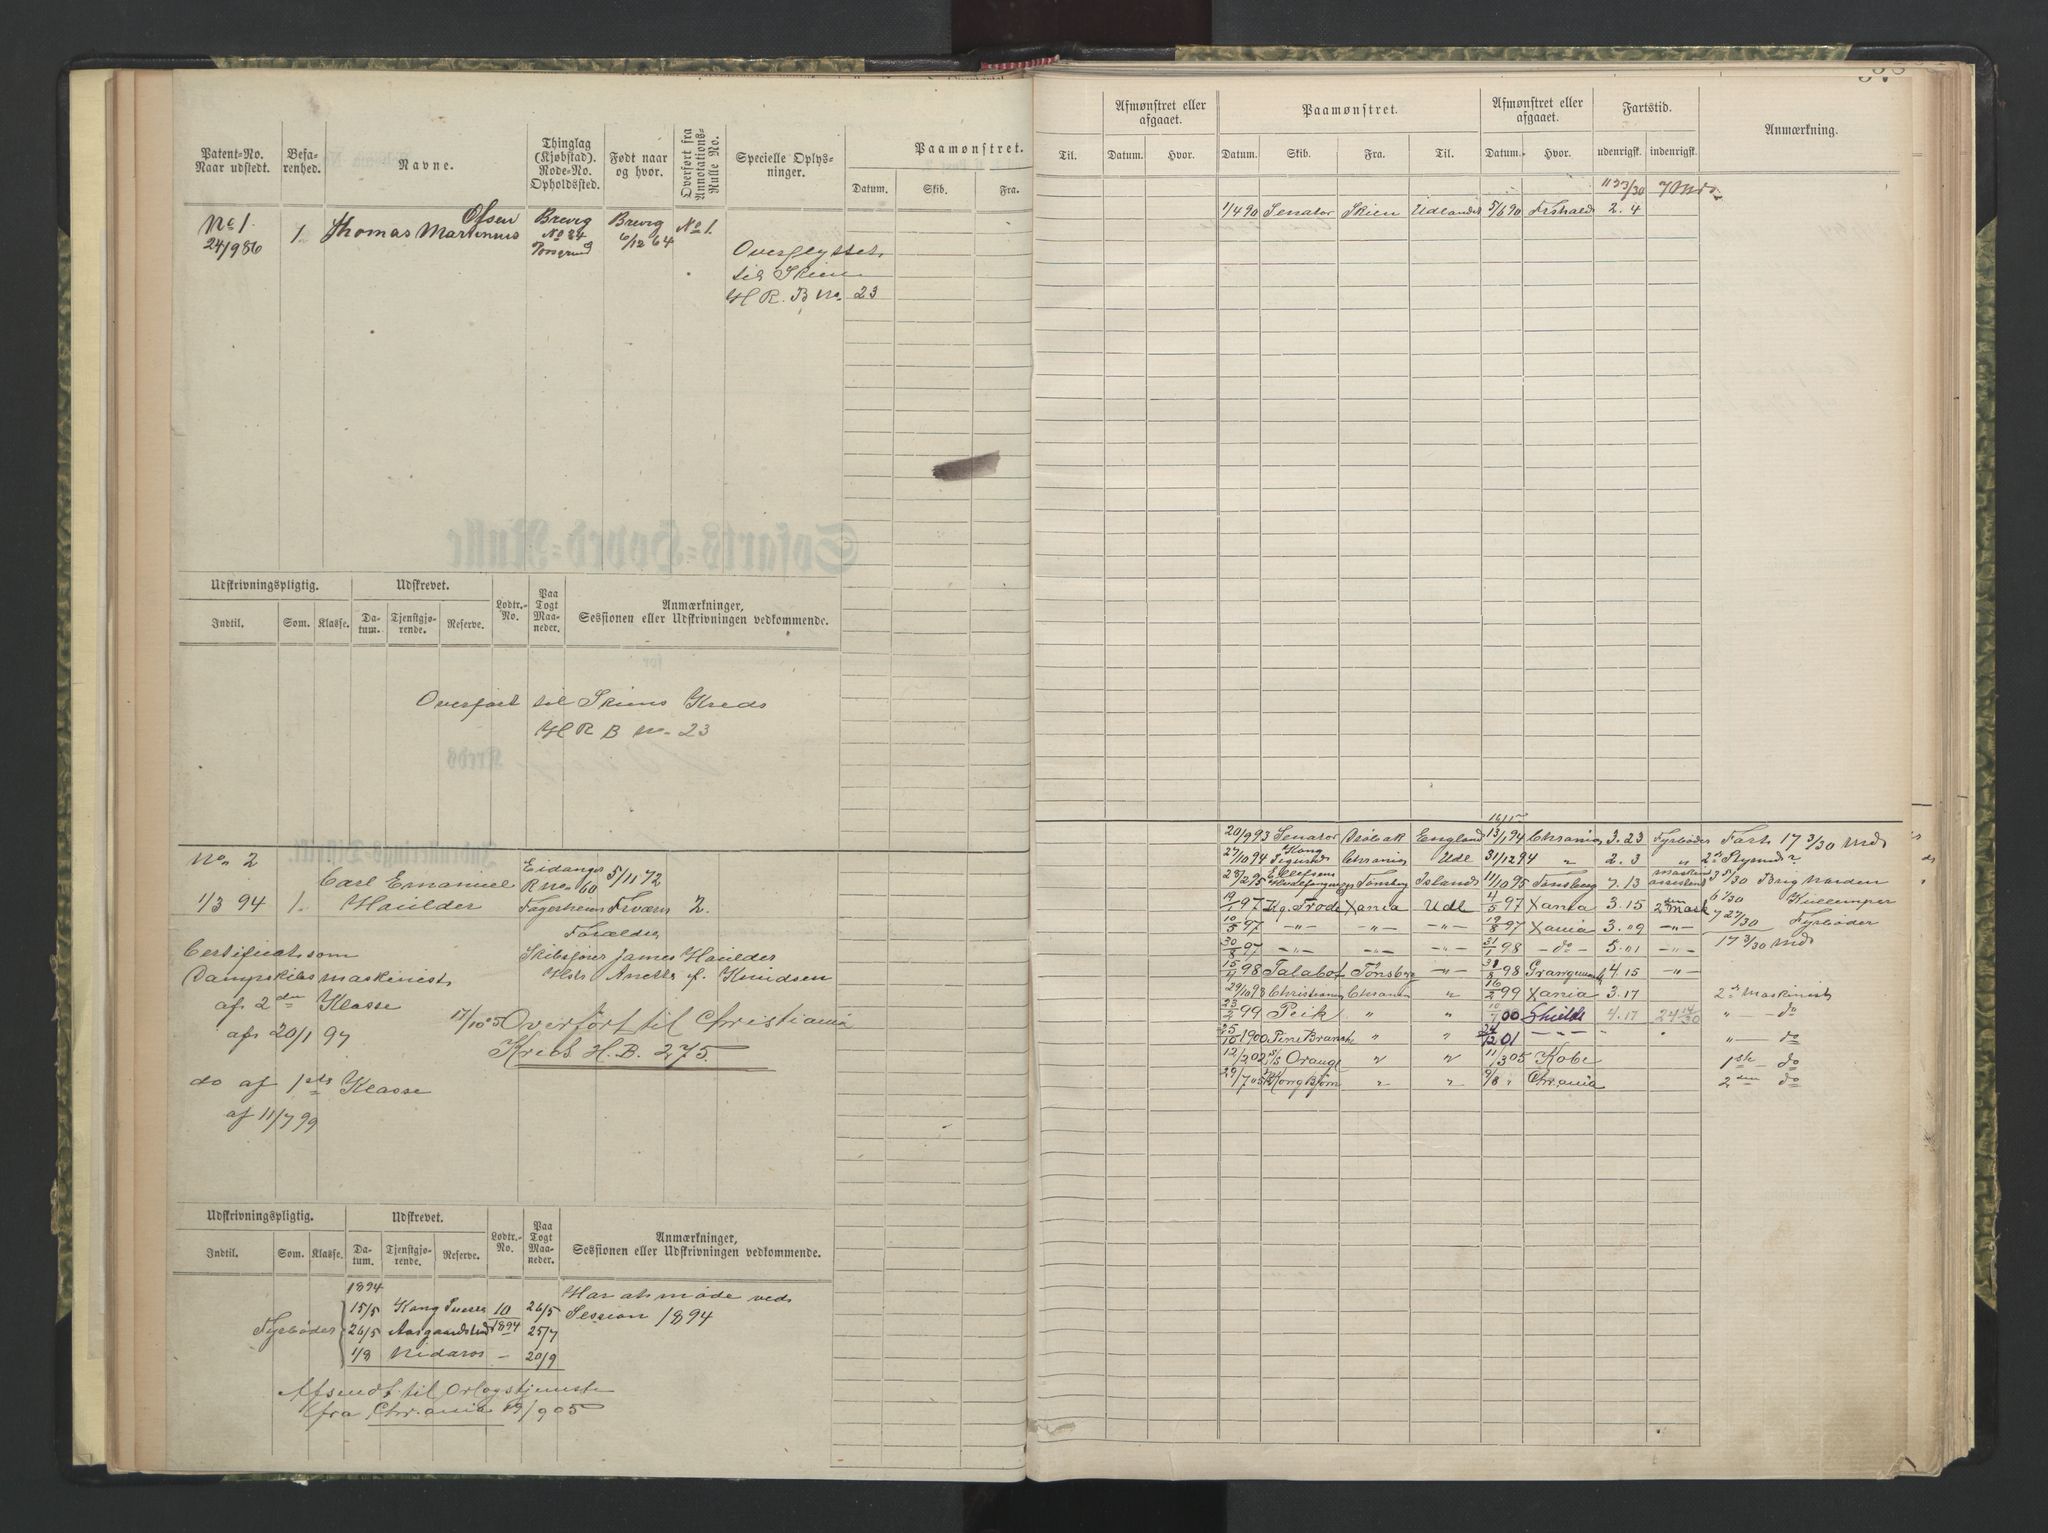 Patent-No. Naar udstedt.
Befa-renhed.
Navne.
Thinglag (Kjøbstad). Rode-No. Opholdssted.
Født naar og hvor.
Overført fra Annotations-Rulle No.
Specielle Oplys-ninger.
Paamønstret.
Datum. Skib. Fra.
No 1. 24/9 86
1.
Thomas Martinius Olsen
Brevig No 34 Porsgrund
Brevig 6/12 64
No 1.
Overflyttet
til Skien
H R. B No. 23
Udskrivningspligtig. Udskrevet. Lodtr.-No. Paa Togt Maa-neder. Anmærkninger, Sessionen eller Udskrivningen vedkommende.
Indtil. Søm. Klasse. Da-tum. Tjenstgjø-rende. Reserve.
Overført til Skiens Kreds
H R B No. 23
No. 2
1/3 94
1.
Carl Emanuel
Haulder
Eidanger
R No. 60
Fagerheim
5/11 72
2.
Forældre
Skibsfører James Haulder
Anette f. Knudsen
Certificat som
Dampskibsmaskinist
af 2den Klasse
af 20/1 97
do af 1ste Klasse
af 11/7 99
17/10 05 Overført til Christiania
Kreds H. B. 275.
Udskrivningspligtig. Udskrevet. Lodtr.-No. Paa Togt Maa-neder. Anmærkninger, Sessionen eller Udskrivningen vedkommende.
Indtil. Søm. Klasse. Da-tum. Tjenstgjø-rende. Reserve.
1894
Fyrbøder
15/5 Kong Sverre 10 26/5
26/5 1894 25/7
1/8 Nidaros - 20/9
Har at møde ved
Session 1894
Afsendt til Orlogstjeneste
fra Chr.ania 19/9 05
Afmønstret eller afgaaet. Paamønstret. Afmønstret eller afgaaet. Fartstid. Anmærkning.
Til. Datum. Hvor. Datum. Skib. Fra. Til. Datum. Hvor. udenrigsk. indenrigsk.
7 Mdr
1/4 90 Senator Skien Udlandet 5/6 90 2. 4
20/9 93 Senator Drøbak England 13/1 94 Chrania 3. 23 Fyrbøder Fart 17 3/30 Mdr
27/10 94 Kong Sigurd Chrania Udl 31/12 94 " 2. 3 "
28/2 95 Tønsberg Island 11/10 95 Tønsberg 7. 13 maskinist assistent 3 5/30 Brig Norden
19/1 97 Kg. Frode Xania Udl 4/5 97 Xania 3. 15 2den Mask 6 1/30 Kullemper
10/5 97 -"- -"- -"- 19/8 97 Xania 3. "9 -"- 7 27/30 Fyrbøder
30/8 97 -"- -"- -"- 31/1 98 -do- 5. "1 -"- 17 3/30 Mdr
15/4 98 Talabot Tønsberg -"- 31/8 98 Grangemouth 4. 15 -"-
29/10 98 Chrania " 16/2 99 Xania 3. 17 2den Maskinist
23/2 99 Peik " " 10/7 00 Shields 4. 17 24 14/30 " - do
25/10 1900 " " 24/12 01 - " - " - do
12/2 02 Orange " " 11/3 05 Kobe 1ste - do
29/7 05 Kong Bjørn " " 9/8 " Chr.ania 2den do